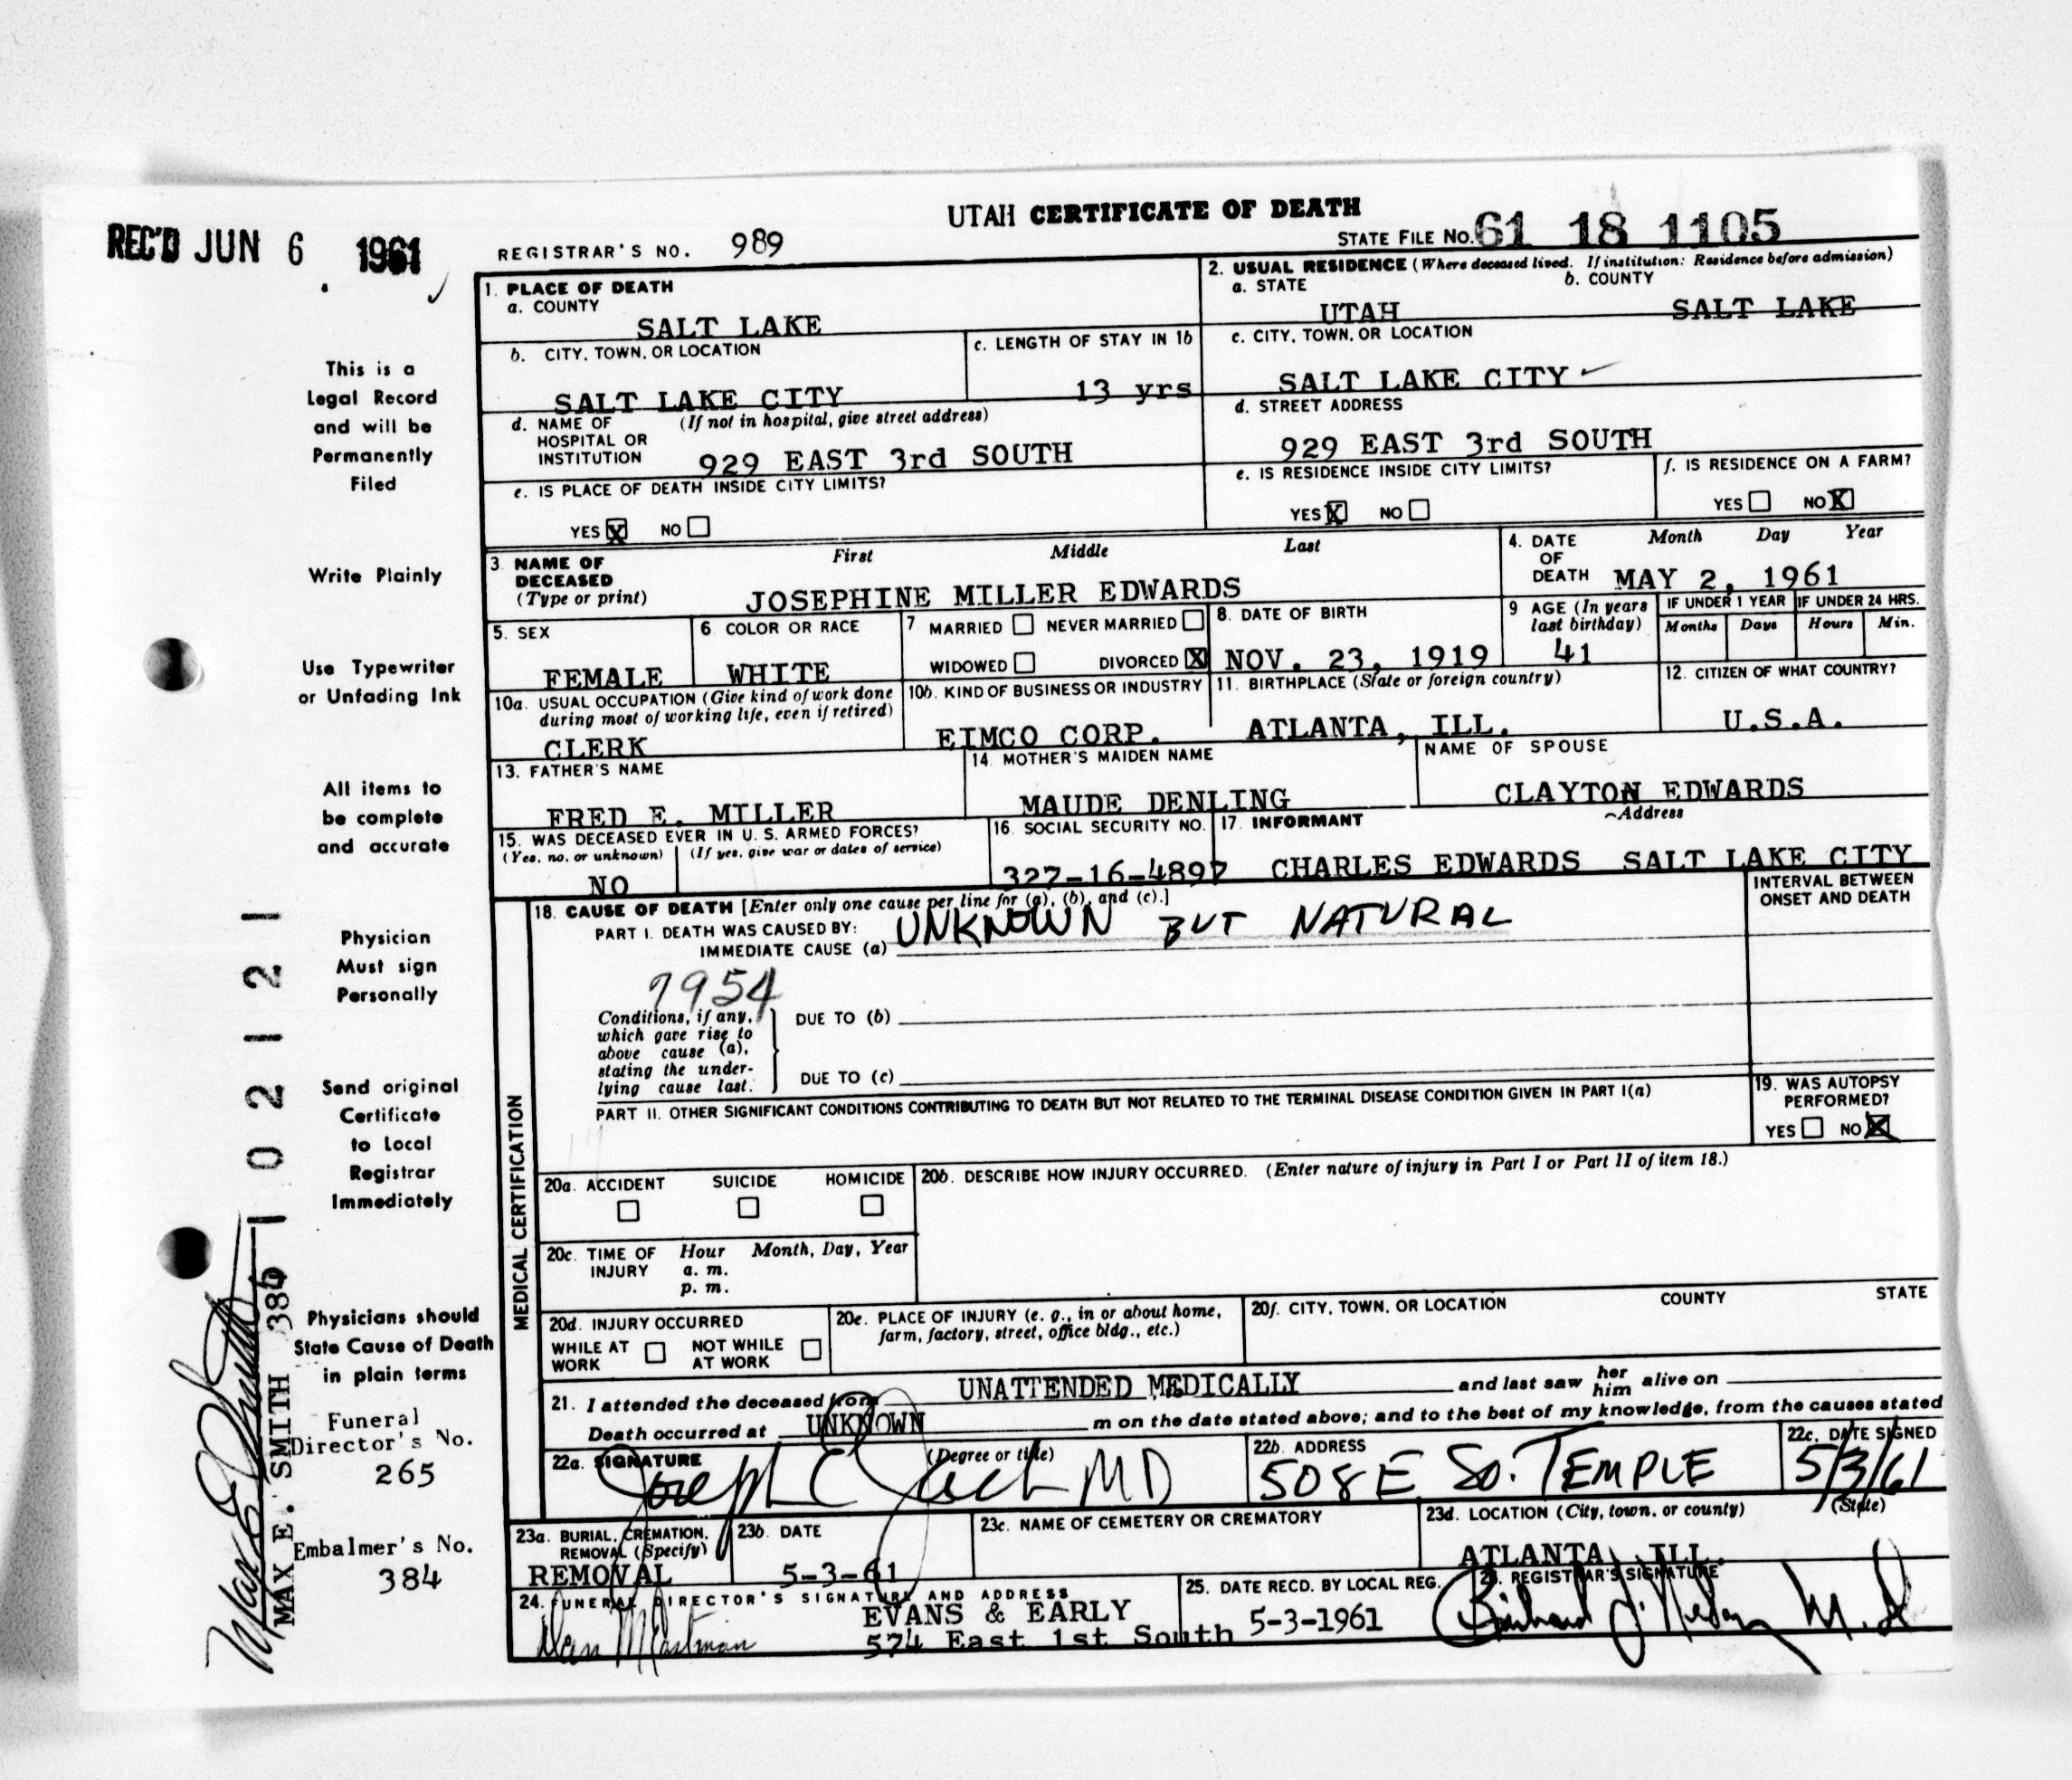 UTAH CERTIFICATE OF DEATH
REC'D JUN 6 1961
REGISTRAR'S NO. 989
STATE FILE NO. 61 18 1105
1. PLACE OF DEATH
a. COUNTY
SALT LAKE
b. CITY, TOWN, OR LOCATION
SALT LAKE CITY
c. LENGTH OF STAY IN 1b
13 yrs
d. NAME OF HOSPITAL OR INSTITUTION (If not in hospital, give street address)
929 EAST 3rd SOUTH
e. IS PLACE OF DEATH INSIDE CITY LIMITS?
YES X NO
2. USUAL RESIDENCE (Where deceased lived. If institution: Residence before admission)
a. STATE
UTAH
b. COUNTY
SALT LAKE
c. CITY, TOWN, OR LOCATION
SALT LAKE CITY
d. STREET ADDRESS
929 EAST 3rd SOUTH
e. IS RESIDENCE INSIDE CITY LIMITS?
YES X NO
f. IS RESIDENCE ON A FARM?
YES NO X
3. NAME OF DECEASED (Type or print)
First Middle Last
JOSEPHINE MILLER EDWARDS
4. DATE OF DEATH Month Day Year
MAY 2, 1961
5. SEX
FEMALE
6. COLOR OR RACE
WHITE
7 MARRIED NEVER MARRIED
WIDOWED DIVORCED X
8. DATE OF BIRTH
NOV. 23, 1919
9 AGE (In years last birthday)
41
IF UNDER 1 YEAR IF UNDER 24 HRS.
Months Days Hours Min.
10a. USUAL OCCUPATION (Give kind of work done during most of working life, even if retired)
CLERK
10b. KIND OF BUSINESS OR INDUSTRY
EIMCO CORP.
11. BIRTHPLACE (State or foreign country)
ATLANTA, ILL.
12. CITIZEN OF WHAT COUNTRY?
U.S.A.
13. FATHER'S NAME
FRED E. MILLER
14. MOTHER'S MAIDEN NAME
MAUDE DENLING
NAME OF SPOUSE
CLAYTON EDWARDS
15. WAS DECEASED EVER IN U. S. ARMED FORCES?
(Yes, no, or unknown) (If yes, give war or dates of service)
NO
16. SOCIAL SECURITY NO.
327-16-4897
17. INFORMANT Address
CHARLES EDWARDS SALT LAKE CITY
MEDICAL CERTIFICATION
18. CAUSE OF DEATH [Enter only one cause per line for (a), (b), and (c).]
PART I. DEATH WAS CAUSED BY:
IMMEDIATE CAUSE (a) UNKNOWN BUT NATURAL
7954
Conditions, if any, which gave rise to above cause (a), stating the underlying cause last.
DUE TO (b)
DUE TO (c)
INTERVAL BETWEEN ONSET AND DEATH
PART II. OTHER SIGNIFICANT CONDITIONS CONTRIBUTING TO DEATH BUT NOT RELATED TO THE TERMINAL DISEASE CONDITION GIVEN IN PART I(a)
19. WAS AUTOPSY PERFORMED?
YES NO X
20a. ACCIDENT SUICIDE HOMICIDE
20b. DESCRIBE HOW INJURY OCCURRED. (Enter nature of injury in Part I or Part II of item 18.)
20c. TIME OF INJURY Hour Month, Day, Year
a. m.
p. m.
20d. INJURY OCCURRED
WHILE AT WORK NOT WHILE AT WORK
20e. PLACE OF INJURY (e. g., in or about home, farm, factory, street, office bldg., etc.)
20f. CITY, TOWN, OR LOCATION COUNTY STATE
21. I attended the deceased from UNATTENDED MEDICALLY and last saw her him alive on
Death occurred at UNKNOWN m on the date stated above; and to the best of my knowledge, from the causes stated
22a. SIGNATURE (Degree or title)
Joseph C MD
22b. ADDRESS
508 E So. TEMPLE
22c. DATE SIGNED
5/3/61
23a. BURIAL, CREMATION, REMOVAL (Specify)
REMOVAL
23b. DATE
5-3-61
23c. NAME OF CEMETERY OR CREMATORY
23d. LOCATION (City, town, or county) (State)
ATLANTA, ILL.
24. FUNERAL DIRECTOR'S SIGNATURE AND ADDRESS
EVANS & EARLY
574 East 1st South
25. DATE RECD. BY LOCAL REG.
5-3-1961
REGISTRAR'S SIGNATURE
M.d
This is a
Legal Record
and will be
Permanently
Filed
Write Plainly
Use Typewriter
or Unfading Ink
All items to
be complete
and accurate
Physician
Must sign
Personally
Send original
Certificate
to Local
Registrar
Immediately
Physicians should
State Cause of Death
in plain terms
Funeral
Director's No.
265
Embalmer's No.
384
Max E Smith
MAX E. SMITH 386
102121